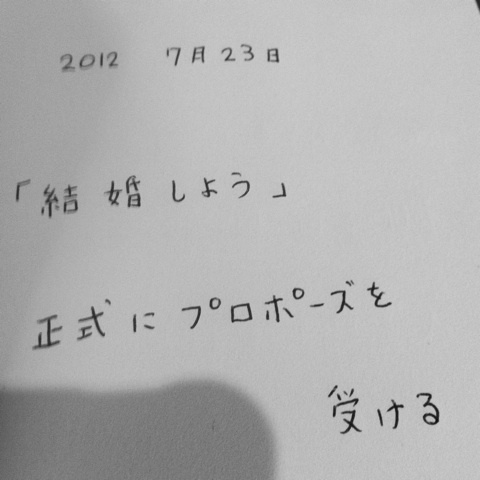 2012 7月23日
「結婚しよう」
正式にプロポーズを
受ける